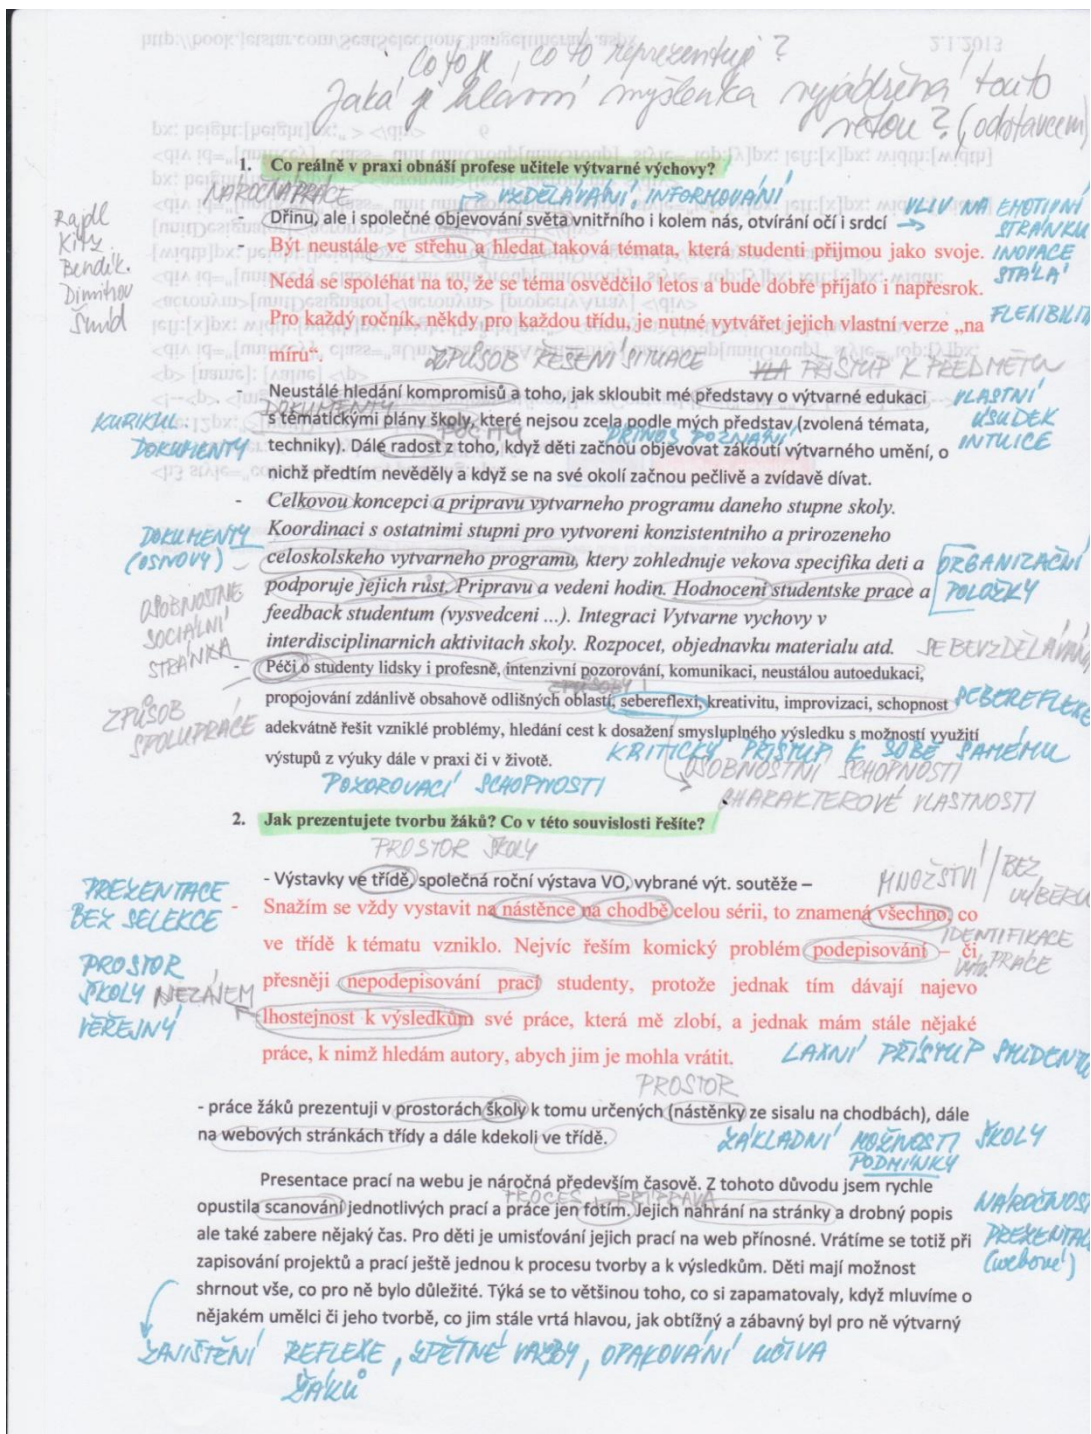 http://book.jetstar.com/SeatSelectionChangeItinerary.aspx 2.1.2013
Co to je, co to reprezentuje?
Jaká je hlavní myšlenka vyjádřená touto
větou? (odstavcem)
1. Co reálně v praxi obnáší profese učitele výtvarné výchovy?
NÁROČNÁ PRÁCE
VZDĚLÁVÁNÍ, INFORMOVÁNÍ
- Dřinu, ale i společné objevování světa vnitřního i kolem nás, otvírání očí i srdcí
VLIV NA EMOTIVNÍ
STRÁNKU
Rajdl
Kitz.
Bendík.
Dimitrov
Šmíd
- Být neustále ve střehu a hledat taková témata, která studenti přijmou jako svoje.
Nedá se spoléhat na to, že se téma osvědčilo letos a bude dobře přijato i napřesrok.
Pro každý ročník, někdy pro každou třídu, je nutné vytvářet jejich vlastní verze „na
míru“.
INOVACE
STÁLÁ
FLEXIBILITA
ZPŮSOB ŘEŠENÍ SITUACE
PŘÍSTUP K PŘEDMĚTU
- Neustálé hledání kompromisů a toho, jak skloubit mé představy o výtvarné edukaci
DOKUMENTY
s tématickými plány školy, které nejsou zcela podle mých představ (zvolená témata,
POCITY
PŘÍNOS POZNÁNÍ
techniky). Dále radost z toho, když děti začnou objevovat zákoutí výtvarného umění, o
nichž předtím nevěděly a když se na své okolí začnou pečlivě a zvídavě dívat.
VLASTNÍ
ÚSUDEK
INTUICE
KURIKUL.
DOKUMENTY
- Celkovou koncepci a pripravu vytvarneho programu daneho stupne skoly.
Koordinaci s ostatnimi stupni pro vytvoreni konzistentniho a prirozeneho
celoskolskeho vytvarneho programu, ktery zohlednuje vekova specifika deti a
podporuje jejich růst. Pripravu a vedeni hodin. Hodnocení studentske prace a
feedback studentum (vysvedceni ...). Integraci Vytvarne vychovy v
interdisciplinarnich aktivitach skoly. Rozpocet, objednavku materialu atd.
DOKUMENTY
(OSNOVY)
ORGANIZAČNÍ
POLOŽKY
OSOBNOSTNĚ
SOCIÁLNÍ
STRÁNKA
SEBEVZDĚLÁVÁNÍ
- Péči o studenty lidsky i profesně, intenzivní pozorování, komunikaci, neustálou autoedukaci,
propojování zdánlivě obsahově odlišných oblastí, sebereflexi, kreativitu, improvizaci, schopnost
adekvátně řešit vzniklé problémy, hledání cest k dosažení smysluplného výsledku s možností využití
výstupů z výuky dále v praxi či v životě.
ZPŮSOB
SPOLUPRÁCE
SEBEREFLEXE
KRITICKÝ PŘÍSTUP K SOBĚ SAMÉMU
OSOBNOSTNÍ SCHOPNOSTI
POZOROVACÍ SCHOPNOSTI
CHARAKTEROVÉ VLASTNOSTI
2. Jak prezentujete tvorbu žáků? Co v této souvislosti řešíte?
PROSTOR ŠKOLY
- Výstavky ve třídě, společná roční výstava VO, vybrané výt. soutěže –
MNOŽSTVÍ / BEZ
VÝBĚRU
PREZENTACE
BEZ SELEKCE
- Snažím se vždy vystavit na nástěnce na chodbě celou sérii, to znamená všechno, co
ve třídě k tématu vzniklo. Nejvíc řeším komický problém podepisování – či
přesněji nepodepisování prací studenty, protože jednak tím dávají najevo
lhostejnost k výsledkům své práce, která mě zlobí, a jednak mám stále nějaké
práce, k nimž hledám autory, abych jim je mohla vrátit.
IDENTIFIKACE
PRÁCE
PROSTOR
ŠKOLY
VEŘEJNÝ
NEZÁJEM
LAXNÍ PŘÍSTUP STUDENTŮ
PROSTOR
- práce žáků prezentuji v prostorách školy k tomu určených (nástěnky ze sisalu na chodbách), dále
na webových stránkách třídy a dále kdekoli ve třídě.
ZÁKLADNÍ MOŽNOSTI ŠKOLY
PODMÍNKY
Presentace prací na webu je náročná především časově. Z tohoto důvodu jsem rychle
PROCES PŘÍPRAVA
opustila scanování jednotlivých prací a práce jen fotím. Jejich nahrání na stránky a drobný popis
ale také zabere nějaký čas. Pro děti je umisťování jejich prací na web přínosné. Vrátíme se totiž při
zapisování projektů a prací ještě jednou k procesu tvorby a k výsledkům. Děti mají možnost
shrnout vše, co pro ně bylo důležité. Týká se to většinou toho, co si zapamatovaly, když mluvíme o
nějakém umělci či jeho tvorbě, co jim stále vrtá hlavou, jak obtížný a zábavný byl pro ně výtvarný
NÁROČNOST
PREZENTACE
(webové)
ZAJIŠTĚNÍ REFLEXE, ZPĚTNÉ VAZBY, OPAKOVÁNÍ UČIVA
ŽÁKŮ